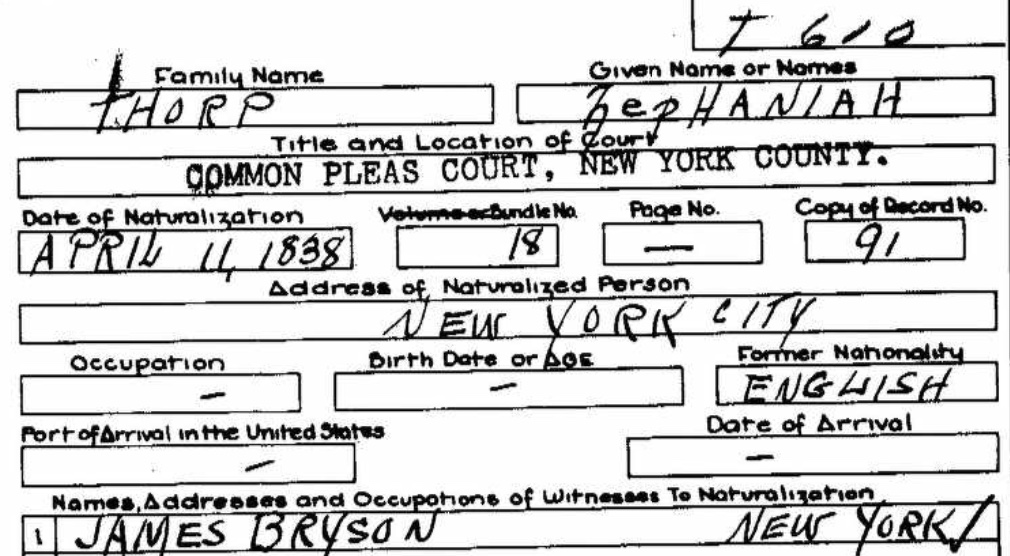 T 610
Family Name Given Name or Names
THORP ZepHANIAH
Title and Location of Court
COMMON PLEAS COURT, NEW YORK COUNTY.
Date of Naturalization Volume or Bundle No. Page No. Copy of Record No.
APRIL 11, 1838 18 — 91
Address of Naturalized Person
NEW YORK CITY
Occupation Birth Date or AGE Former Nationality
— — ENGLISH
Port of Arrival in the United States Date of Arrival
— —
Names, Addresses and Occupations of Witnesses To Naturalization
1 JAMES BRYSON NEW YORK